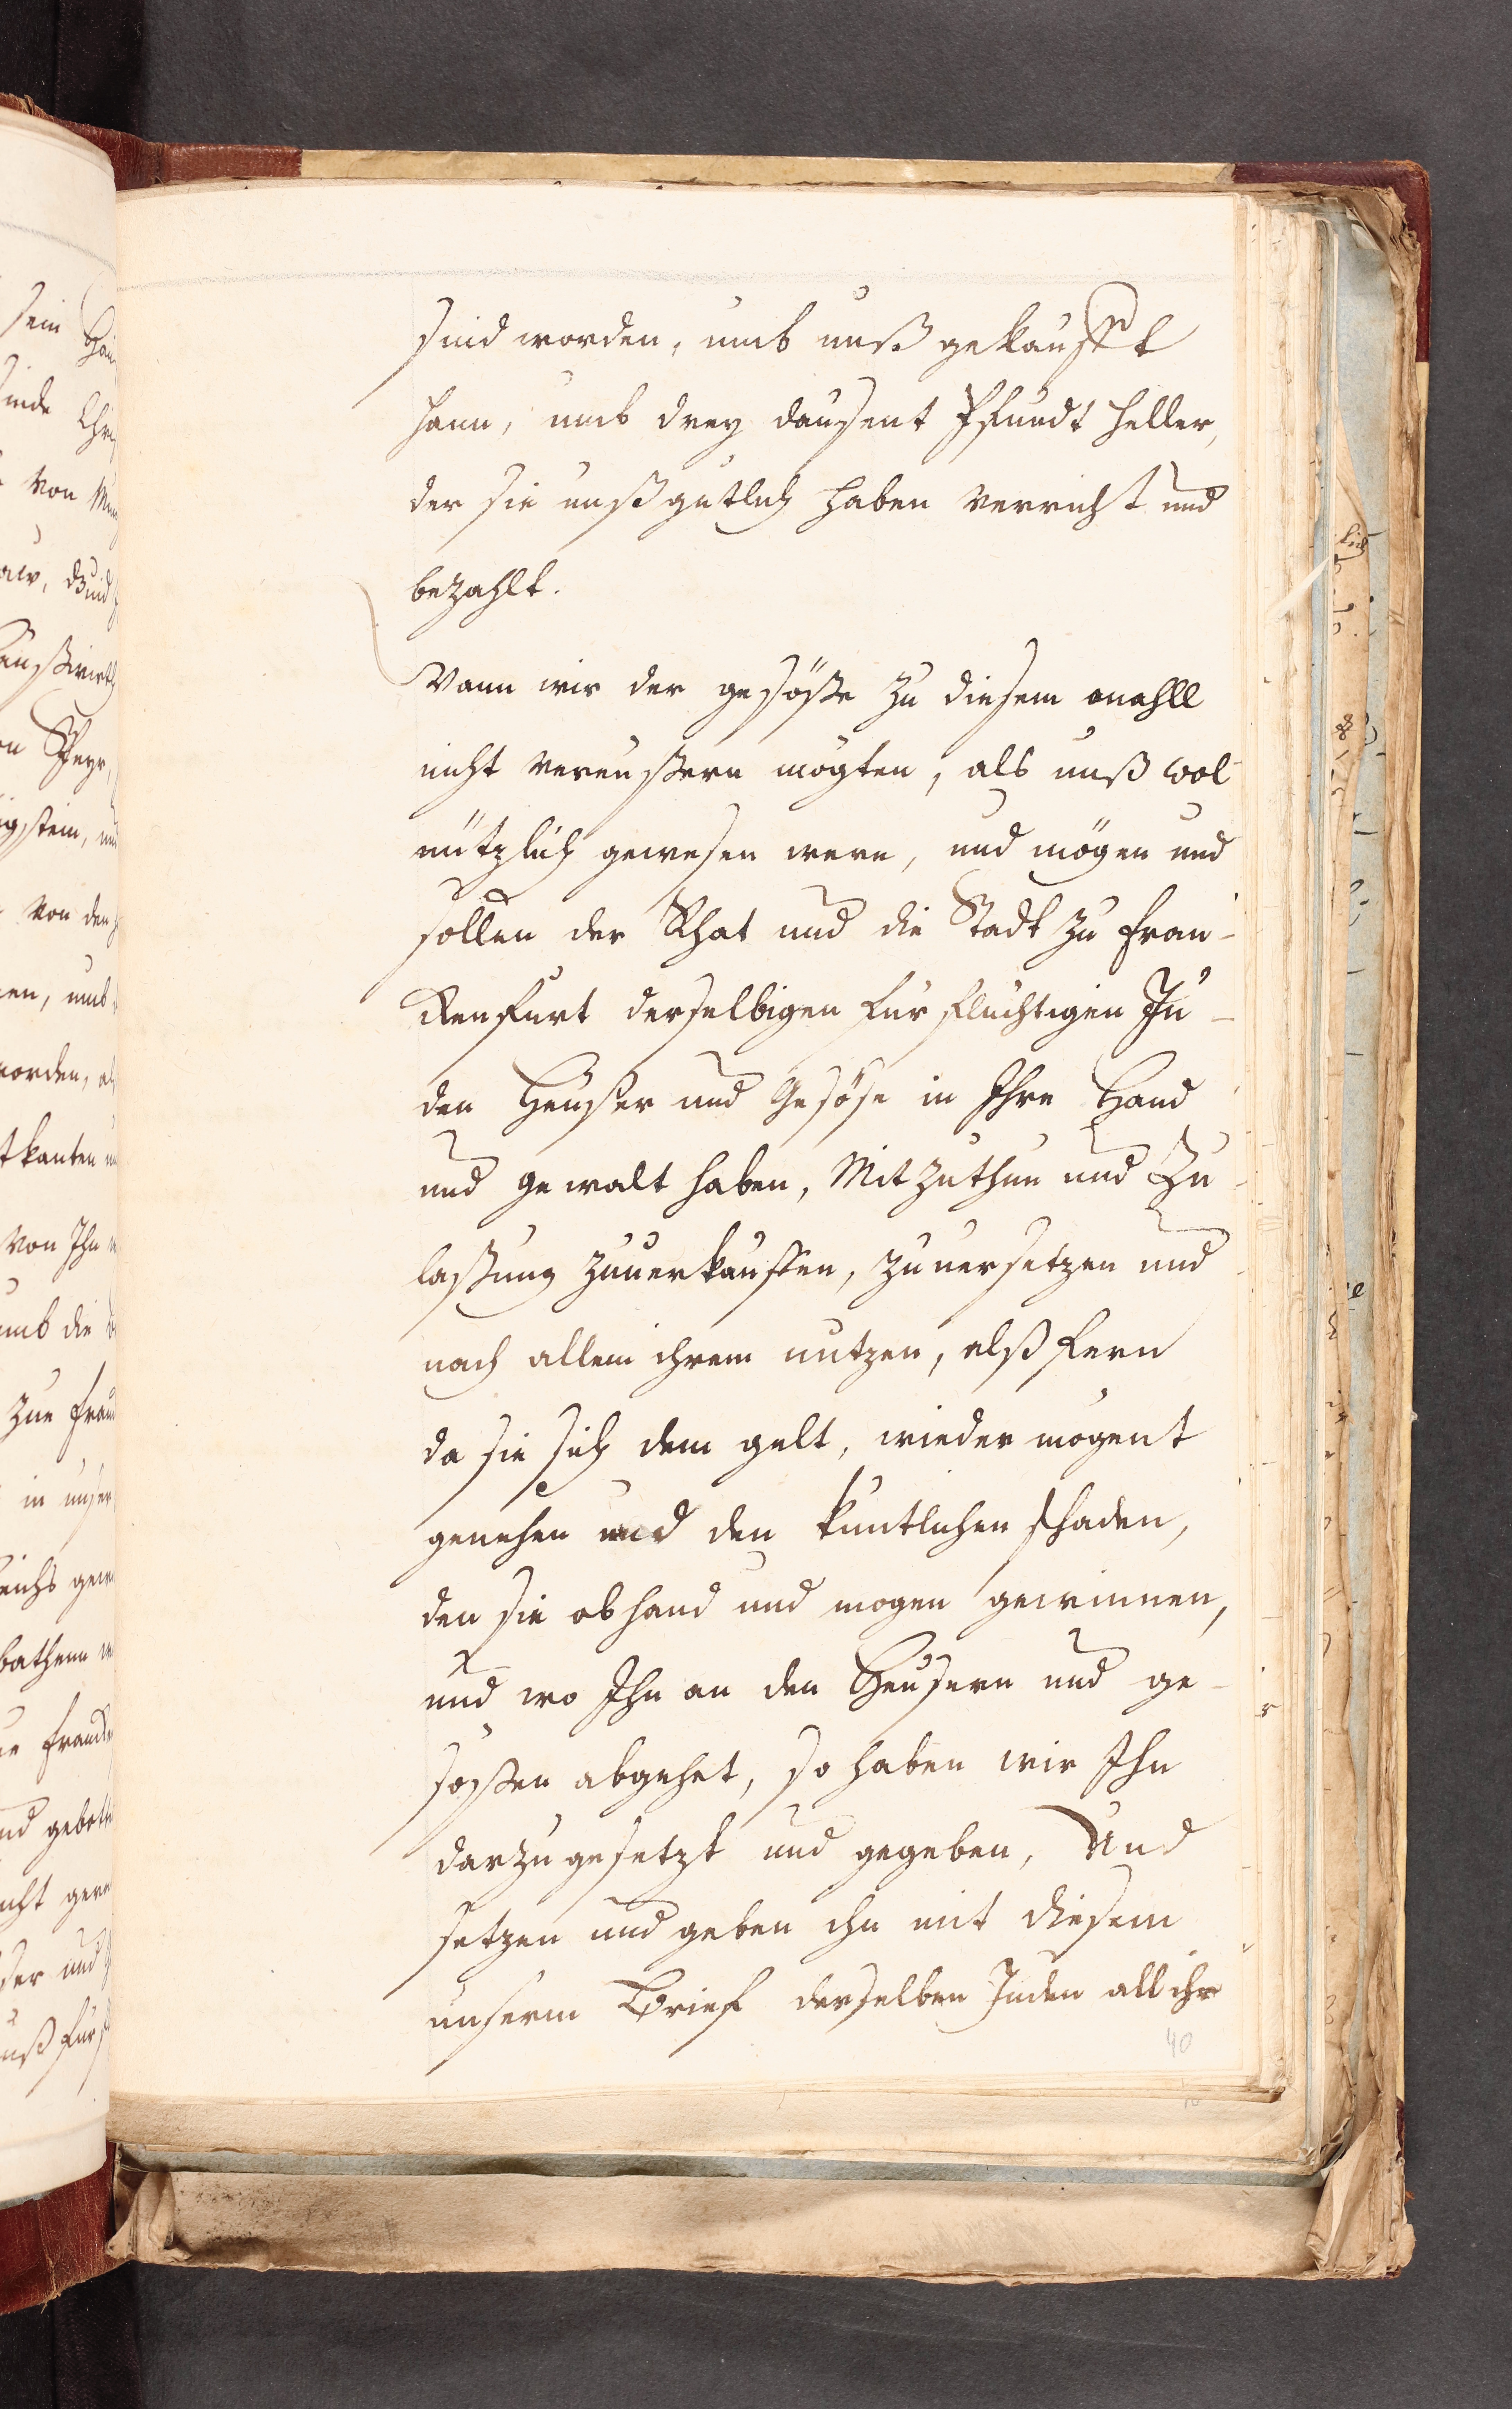 sind worden, umb unß gekaufft
hann, umb drey dausent Pfundt Heller,
der sie unß gutlich haben verricht und
bezahlt.
Wann wir der gesöße zu diesem mahll
nicht vereußern mögten, als unß wol
nützlich gewesen wern, und mögen und
sollen der Rhat und die Stadt zu Fran-
kenfurt derselbigen fürflüchtigen Ju-
den Heußer und Gesöse in Ihre Hand
und gewalt haben, Mit zuthun und Zu-
laßung zuuerkauffen, zuuersetzen und
nach allem ihrem nutzen, alß fern
da sie sich dem gelt, wieder mögent
genehen und den kuntlichen schaden,
den sie ob hand und mogen gewinnen,
und wo Ihn an den Heusern und ge-
soßen abgehet, so haben wir Ihn
darzu gesetzt und gegeben, Und
setzen und geben ihn mit diesem
unserm Brief derselben Juden all ihr
40